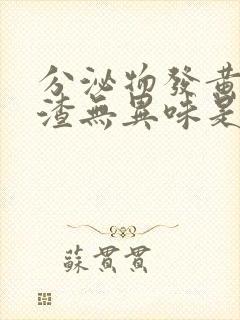 分泌物發黃
渣無異味是
蘇貫貫